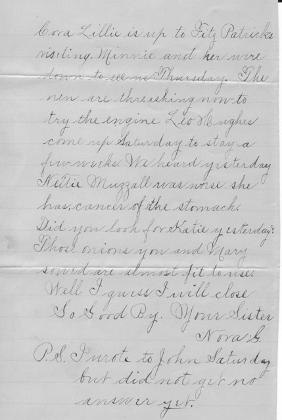 Cora Lillie is up to Fitz Patricks
visiting. Minnie and her were
down to see me Thursday. The
men are threshing now to
try the engine Leo Hughes
come up Saturday to stay a
few weeks. We heard yesterday
Muzzall was worse she
has cancer of the stomach.
Did you look for Katie yesterday?
Those onions you and Mary
sowed are almost fit to use.
Well I guess I will close
So Good By. Your Sister
Nora G.
P.S. I wrote to John Saturday
but did not get no
answer yet.